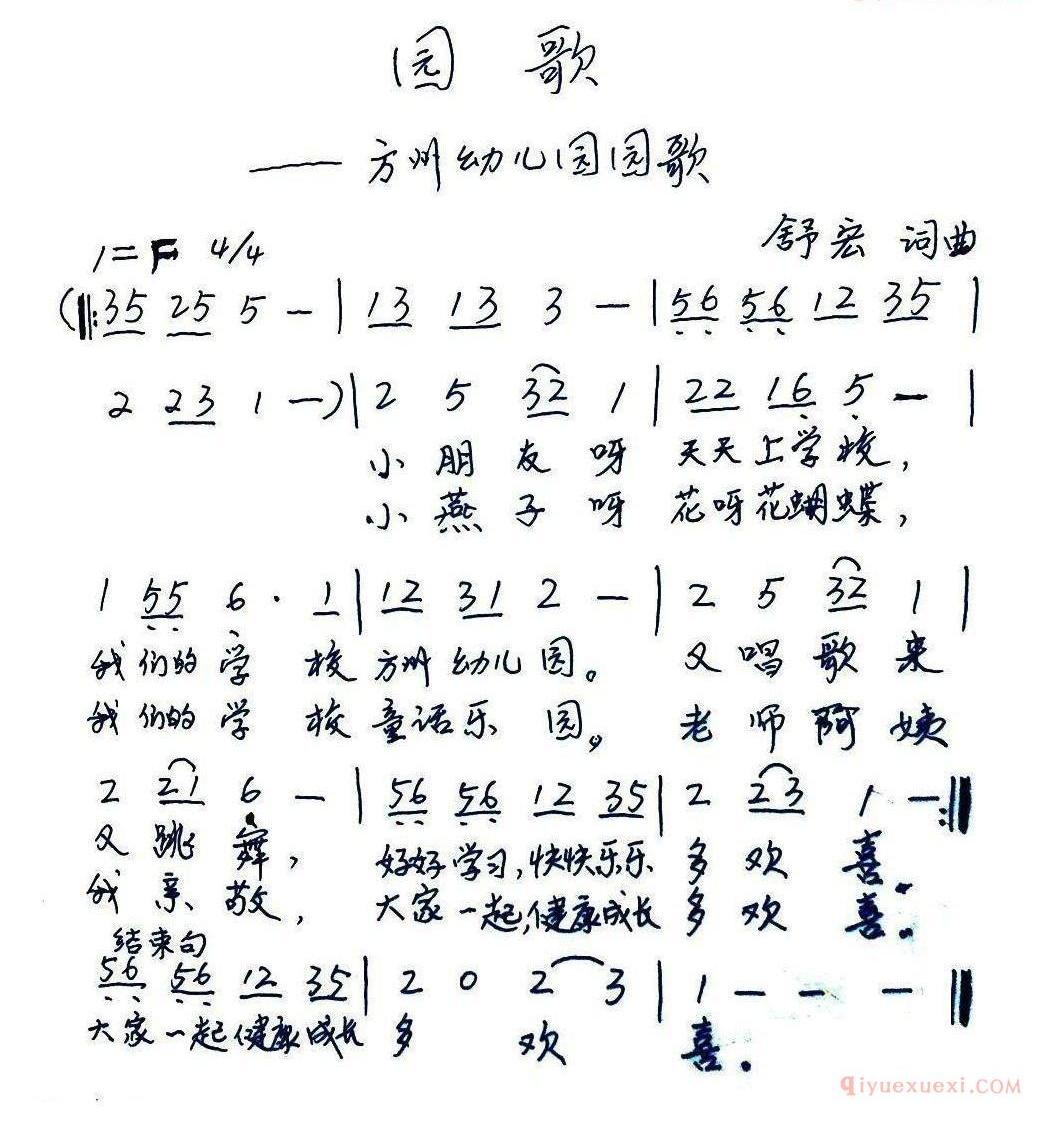 园 歌
—— 方州幼儿园园歌
舒宏 词曲
1=F 4/4
(‖: 35 25 5 - | 13 13 3 - | 56 56 12 35 |
2 23 1 -) | 2 5 32 1 | 22 16 5 - |
小 朋 友 呀 天天上学校，
小 燕 子 呀 花呀花蝴蝶，
1 55 6 · 1 | 12 31 2 - | 2 5 32 1 |
我们的学 校 方州幼儿园。 又 唱 歌 来
我们的学 校 童话乐 园。 老 师 阿 姨
2 21 6 - | 56 56 12 35 | 2 23 1 - :‖
又 跳 舞， 好好学习，快快乐乐 多 欢 喜。
我 亲 敬， 大家一起，健康成长 多 欢 喜。
结束句
56 56 12 35 | 2 0 2 3 | 1 - - - ‖
大家一起健康成长 多 欢 喜。
qiyuexuexi.COM